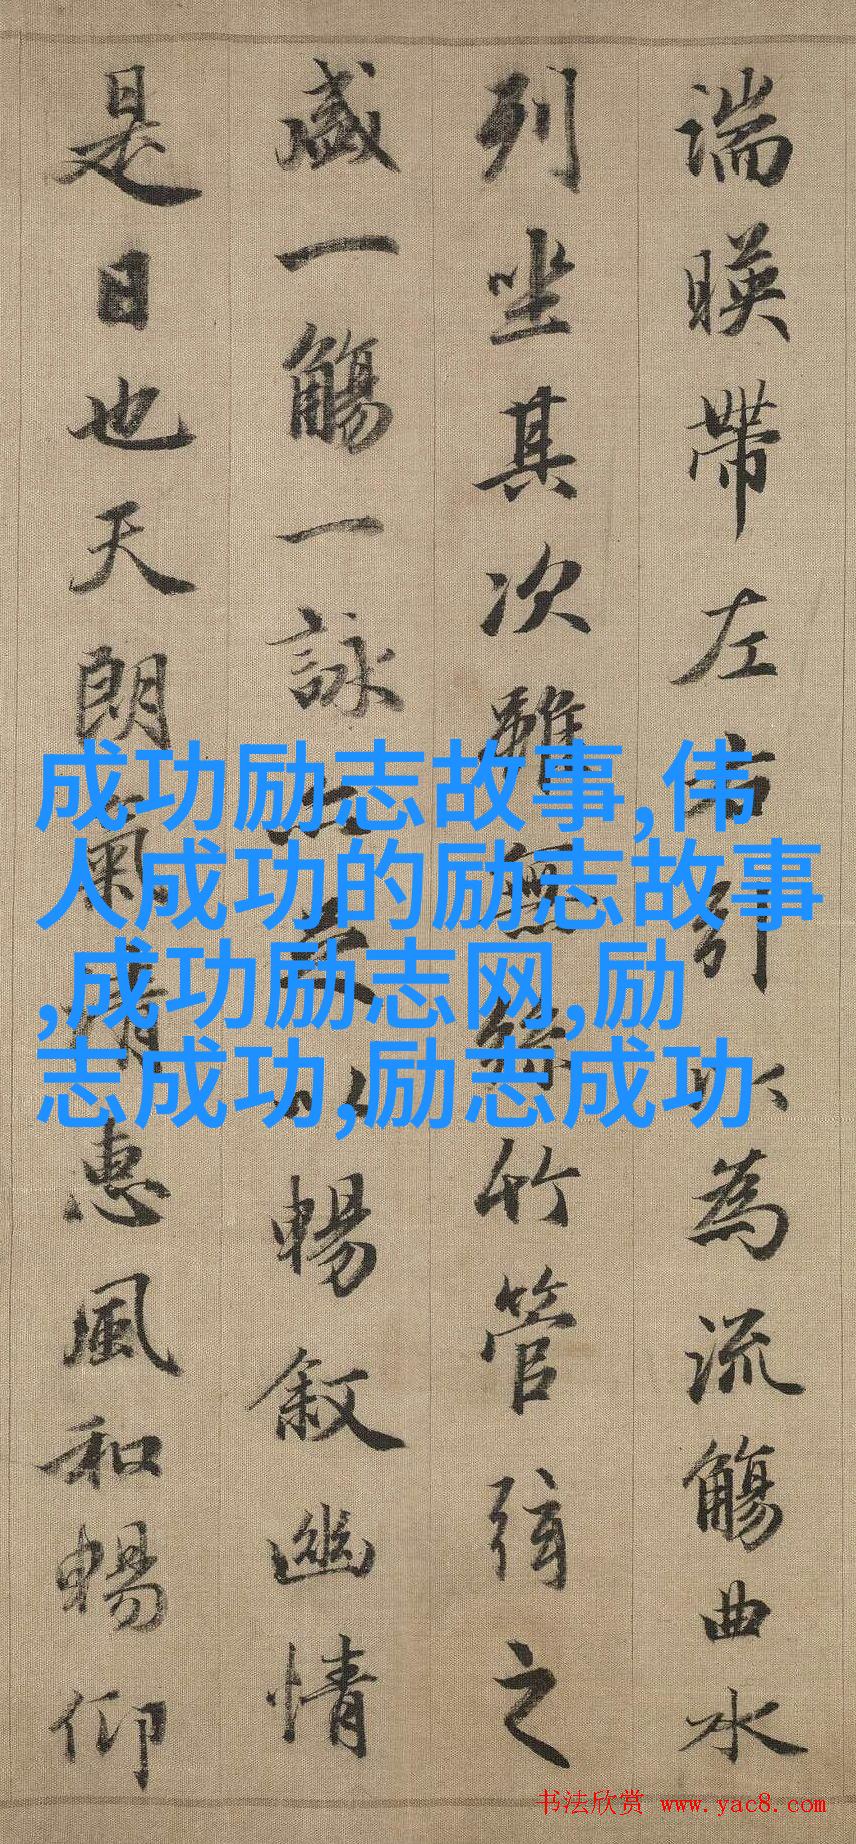 湍暎帶左右引以為流觴曲水
列坐其次雖無絲竹管弦之
盛一觴一詠亦足以暢叙幽情
是日也天朗氣清惠風和暢仰
成功励志故事,伟
人成功的励志故事
,成功励志网,励
志成功,励志成功
书法欣赏 www.yac8.com